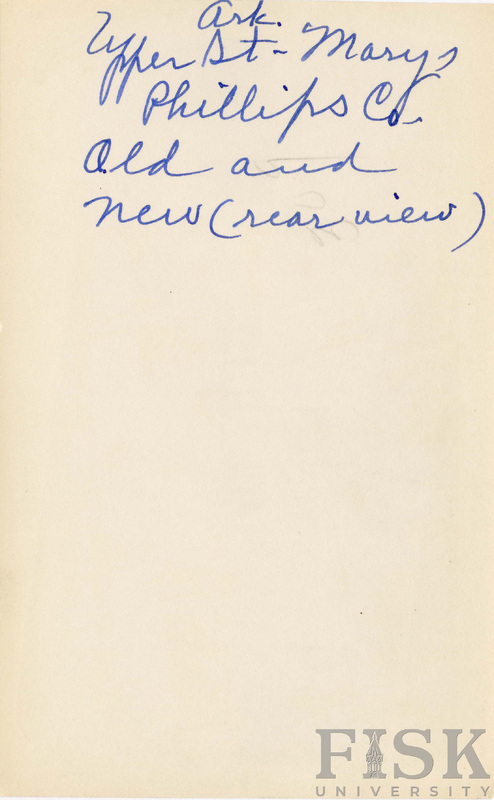 Ark.
Upper St - Marys
Phillips Co.
Old and
New (rear view)
FISK
UNIVERSITY